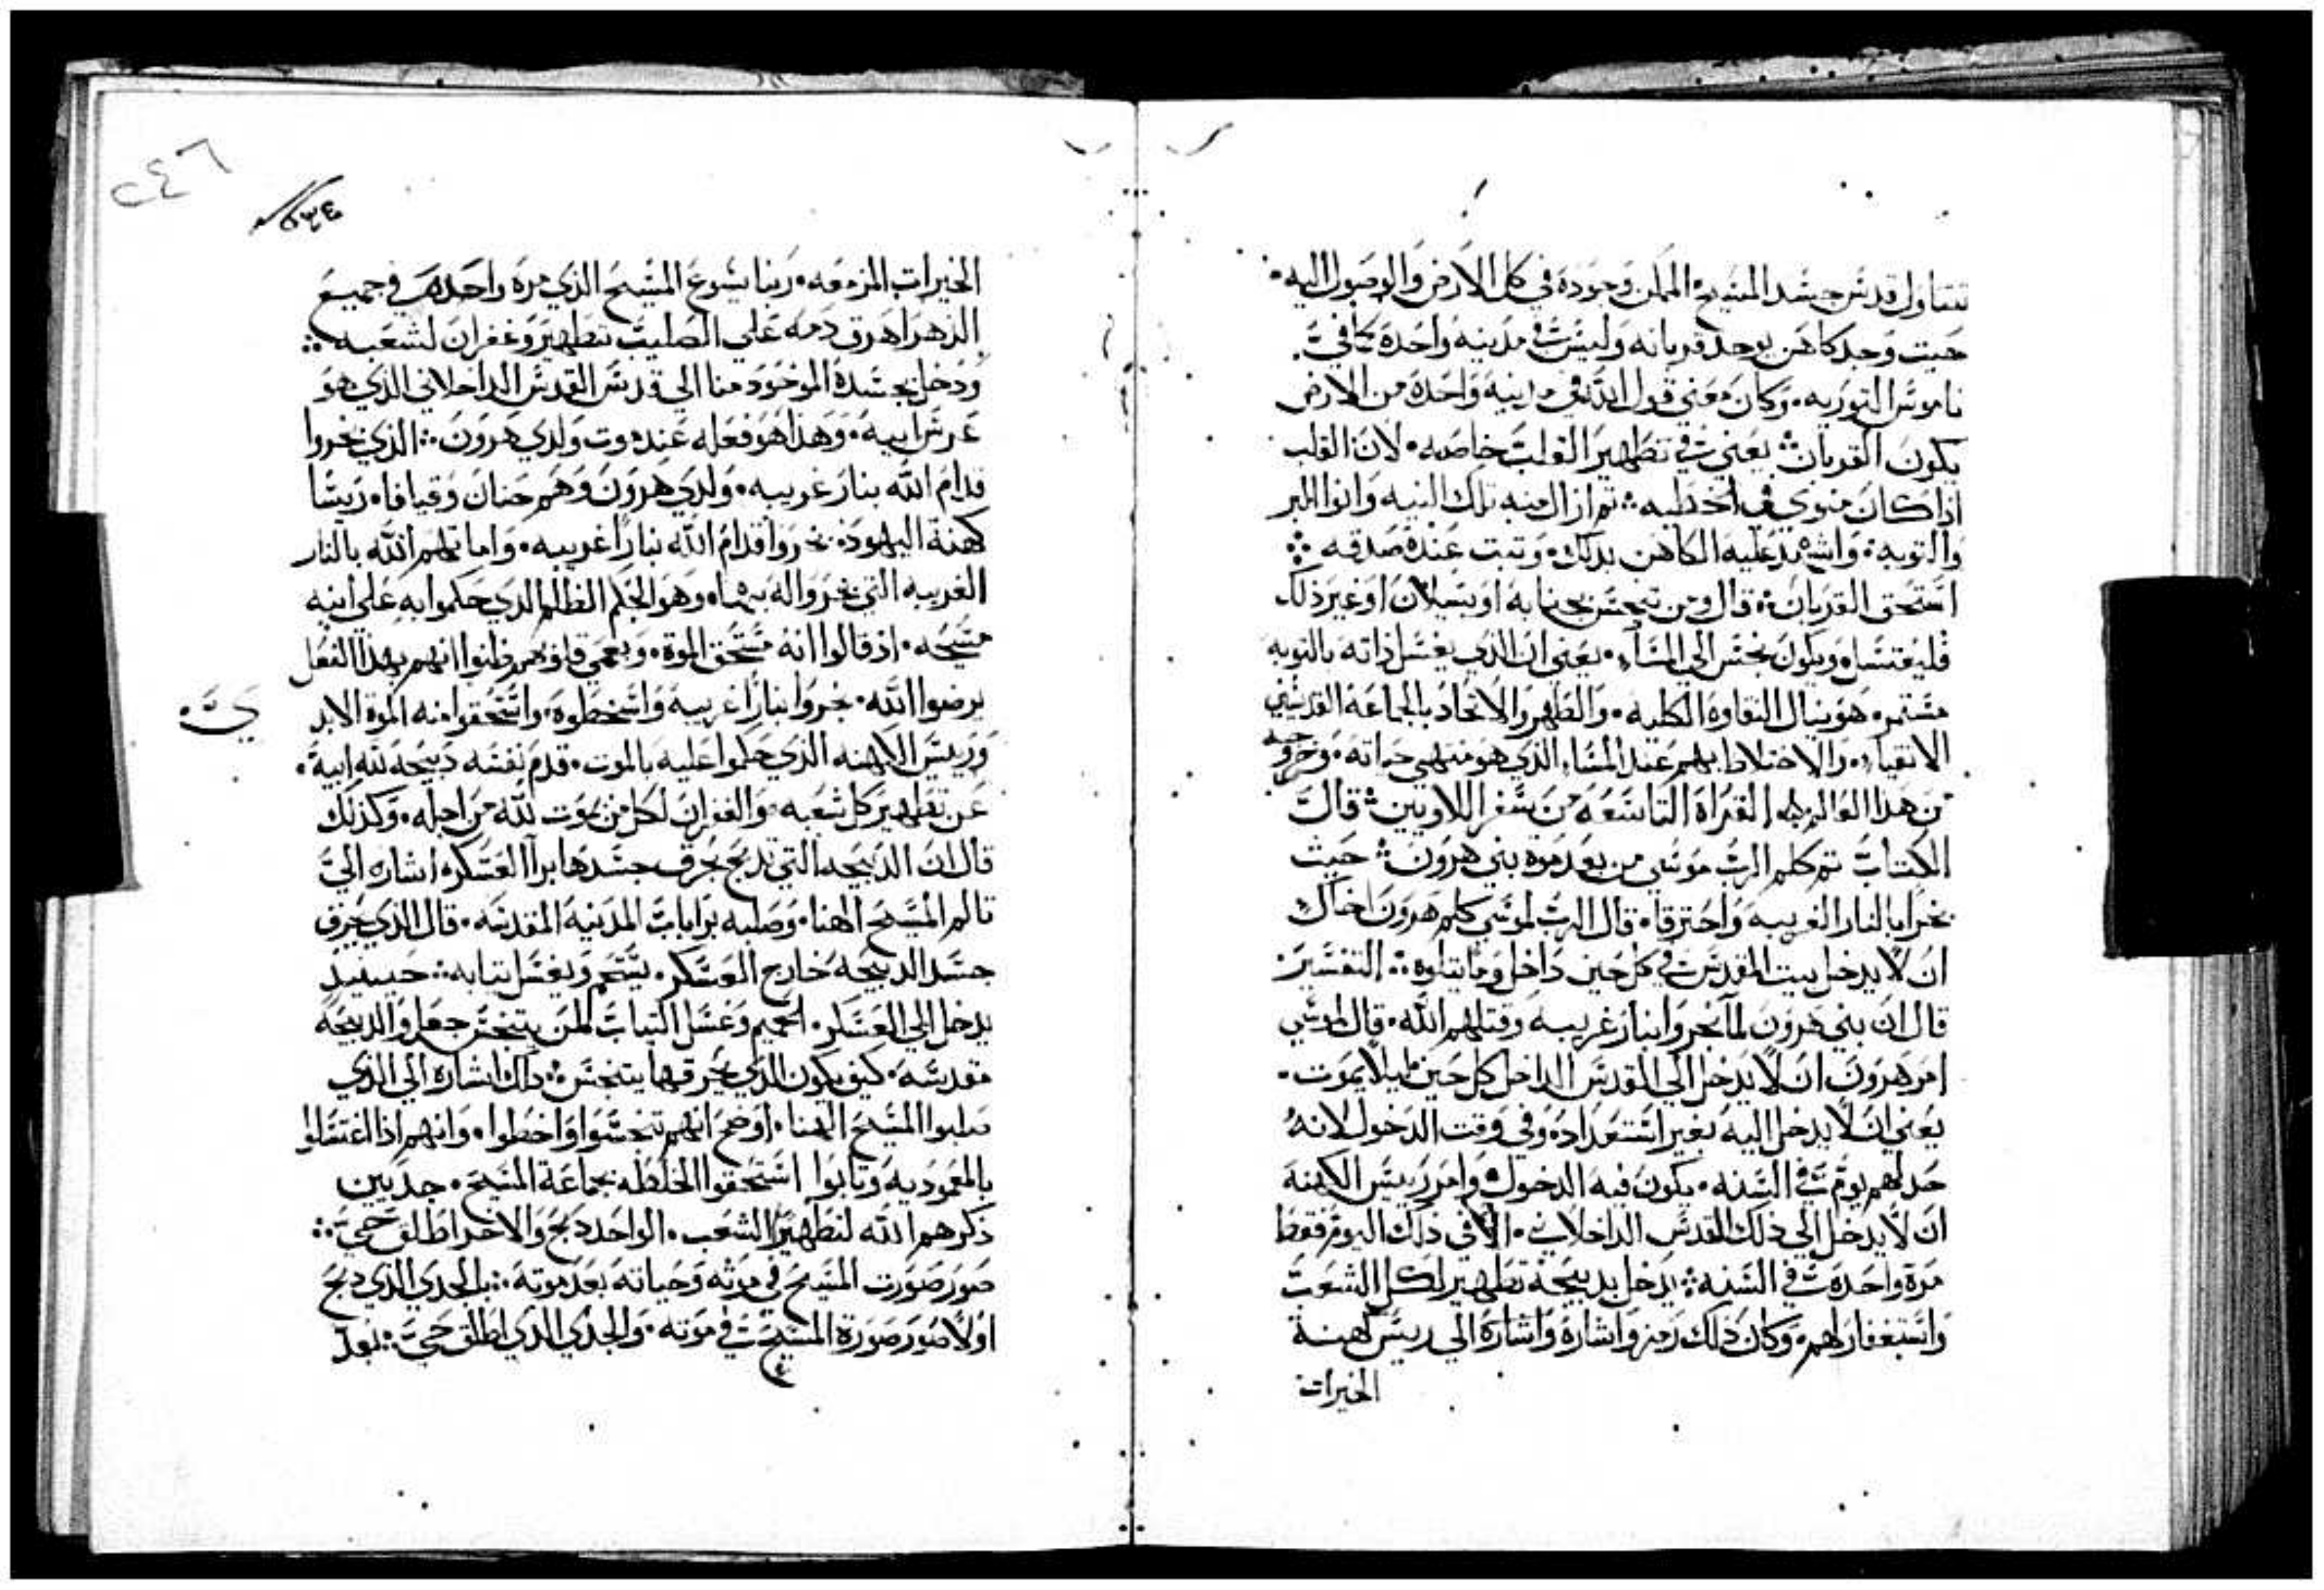 نتناول قدس جسد المسيح الممكن وجوده في كل الارض والوصول اليه
حيت وجد كاهن يوجد قربانه وليس في مدينه واحده كما في
ناموس التوريه وكان معني قول الله في مدينه واحده من الارض
يكون القربان يعني في تطهير القلب خاصه لان القلب
اذا كان منوي في الخطيه تم ازال منه تلك النيه وانوا البر
والتوبه واشهد عليه الكاهن بدلك وتبت عنده صدقه
استحق القربان قال ومن تنجس بجنابه او بسيلان او غير ذلك
فليغتسل ويكون نجس الي المسآ يعني ان الذي يغسل ذاته بالتوبه
مستمر هو ينال النقاوه الكليه والطهر والاتحاد بالجماعه القديسين
الانقياء والاختلاط بهم عند المساء الذي هو منتهي حياته وخروجه
من هذا العالم القراة التاسعه من سفر اللاويين قال
الكتاب تم كلم الرب موسي من بعد موة بني هرون حيث
بخرا بالنار الغريبه واحترقا قال الرب لموسي كلم هرون اخاك
ان لا يدخل بيت المقدس في كل حين داخل وما يتلوه التفسير
قال ان بني هرون لما بخروا بنار غريبه وقتلهم الله قال لموسي
امر هرون ان لا يدخل الي المقدس الداخل كل حين ليلا يموت
يعني ان لا يدخل اليه بغير استعداد وفي وقت الدخول لانه
حد لهم يوم في السنه يكون فيه الدخول وامر رييس الكهنه
ان لا يدخل الي ذلك القدس الداخلاني الا في ذلك اليوم فقط
مرة واحده في السنه يدخل بدبيحة تطهير لكل الشعب
واستغفار لهم وكان ذلك رمز واشارة واشارة الي رييس كهنة
الخيرات
٢٤٦
الخيرات المزمعه ربنا يسوع المسيح الذي مرة واحده في جميع
الدهر اهرق دمه علي الصليب تطهير وغفران لشعبه
ودخل بجسده الموخود منا الي قدس القدس الداخلاني الذي هو
عرش ابيه وهذا هو فعله عند موت ولدي هرون الذي بخروا
قدام الله بنار غريبه ولدي هرون وهم حنان وقيافا ريسا
كهنة اليهود بخروا قدام الله بنارا غريبه واماتهم الله بالنار
الغريبه التي بخروا له بها وهو الحكم الظلم الدي حكموا به علي ابنه
مسيحه اذ قالوا انه مستحق الموة وبعمي قلوبهم ظنوا انهم بهذا الفعل
يرضوا الله بخروا بنارا غريبه واسخطوه واستحقوا منه الموة الابد
يَّ
ورييس الكهنه الذي حكموا عليه بالموت قدم نفسه دبيحه لله ابيه
عن تطهير كل شعبه والغفران لكل من يموت لله من اجله وكذلك
قال ان الدبيحه التي تدبح يحرق جسدها برا العسكر اشاره الي
تالم المسيح الهنا وصلبه برا باب المدينه المقدسه قال الذي يحرق
جسد الدبيحه خارج العسكر يستحم ويغسل تيابه حينيد
يدخل الي العسكر الحميم وغسل التياب لمن يتنجس جعل والدبيحه
مقدسه كيف يكون الذي يحرقها يتنجس ذلك اشاره الي الذي
صلبوا المسيح الهنا اوضح انهم تنجسوا واخطوا وانهم اذا اغتسلوا
بالمعموديه وتابوا استحقوا الخلطه بجماعة المسيح جديين
ذكرهم الله لتطهير الشعب الواحد دبح والاخر اطلق حي
صور صورت المسيح في موته وحياته بعد موته بالجدي الذي دبح
اولا صور صورة المسيح في موته والجدي الدي اطلق حي بعد